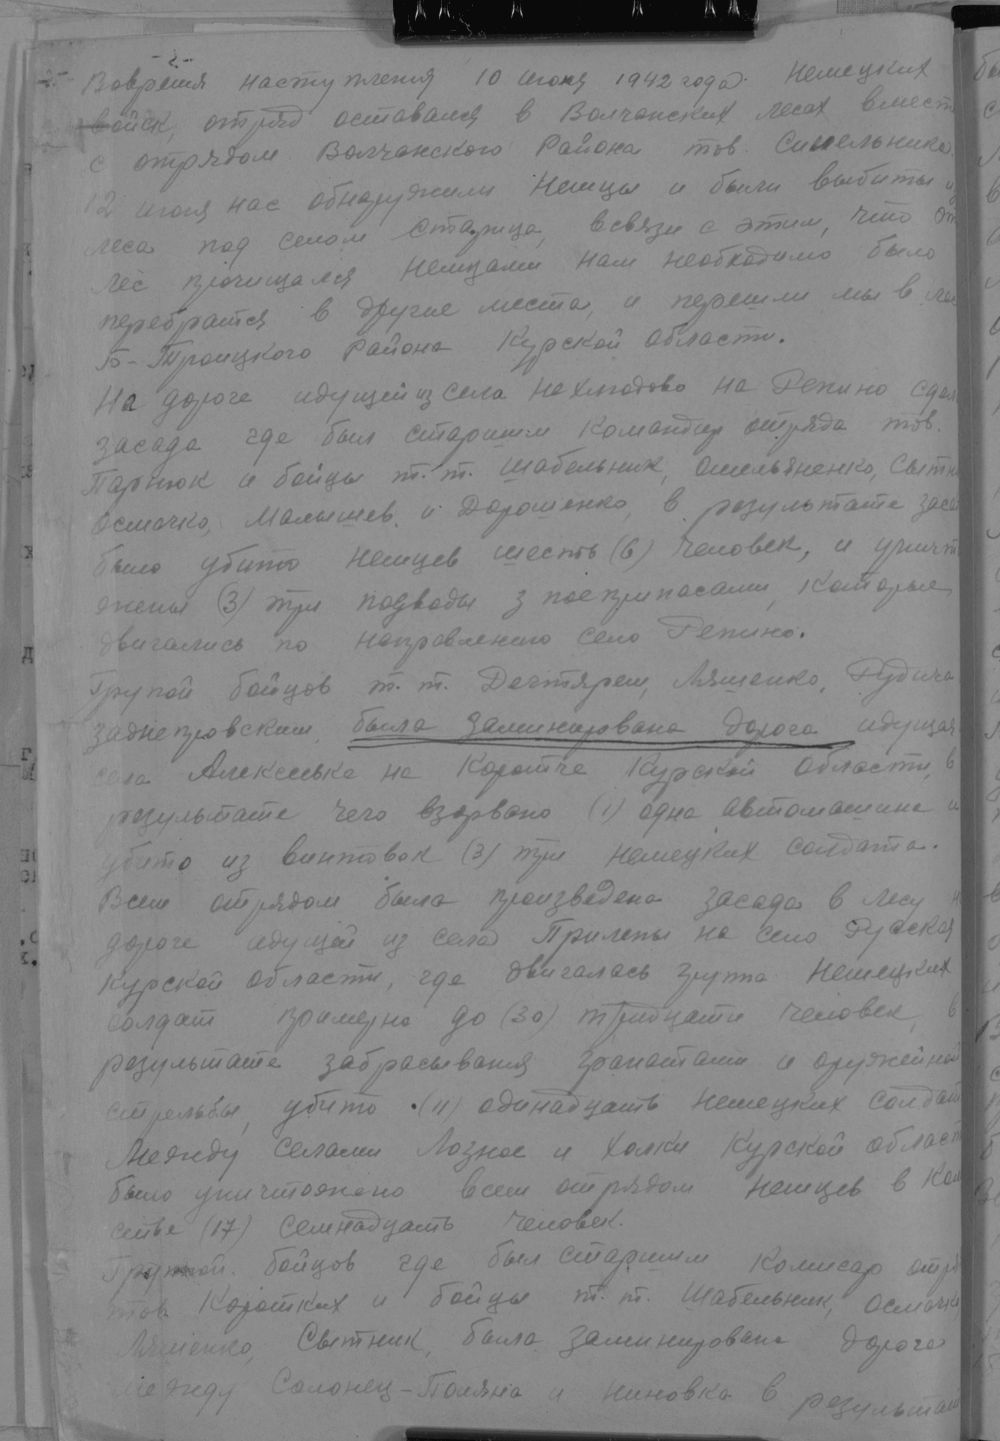 -2-
Вовремя наступления 10 июня 1942 года. немецких
войск, отряд оставался в Волчанских лесах вмест
с отрядом Волчанского Района тов. Синельника.
12 июня нас обнаружили немцы и были выбиты из
леса под селом Старица, всвязи с этим, что эт
лес прочищался немцами нам необходимо было
перебратся в другие места, и перешли мы в лес
Б-Троицкого Района Курской области.
На дороге идущей из села Нехлюдово на Репино сдел
засада где был старшим командир отряда тов.
Партюк и бойцы т.т. Шабельник, Омельяненко, Сытни
Осмачко, Малышев и Дорошенко, в результате заса
было убито немцев шесть (6) человек, и уничт
жены (3) три подводы з поеприпасами, которые
двигались по направлению село Репино.
Групой бойцов т.т. Дегтярем, Ляшенко, Рудича
заднепровским, была заминирована дорога идущая
села Алексеевка на Короча Курской области, в
результате чего взорвано (1) одна автомашина и
убито из винтовок (3) три немецких солдата.
Всем отрядом была произведена засада в лесу н
дороге идущей из села Прилепы на село Русская
Курской области, где двигалась група немецких
солдат примерно до (30) тридцати человек, в
результате забрасывания гранатами и оружейной
стрельбы, убито (11) одинадцать немецких солдат
Между селами Лозное и Холки Курской област
было уничтожено всем отрядом немцев в кол
стве (17) семнадцать человек.
Групой бойцов где был старшим комисар отря
тов. Коротких и бойцы т.т. Шабельник, Осмачко
Ляшенко, Сытник, была заминирована дорога
между Солонец-Поляна и Ниновка в результат